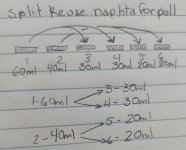 split. Reuse naphta for pull
1 2 3 4 5 6
60ml 40ml 30ml 30ml 20ml 20ml
1-60ml
3-30ml
4-30ml
2-40ml
5-20ml
6-20ml